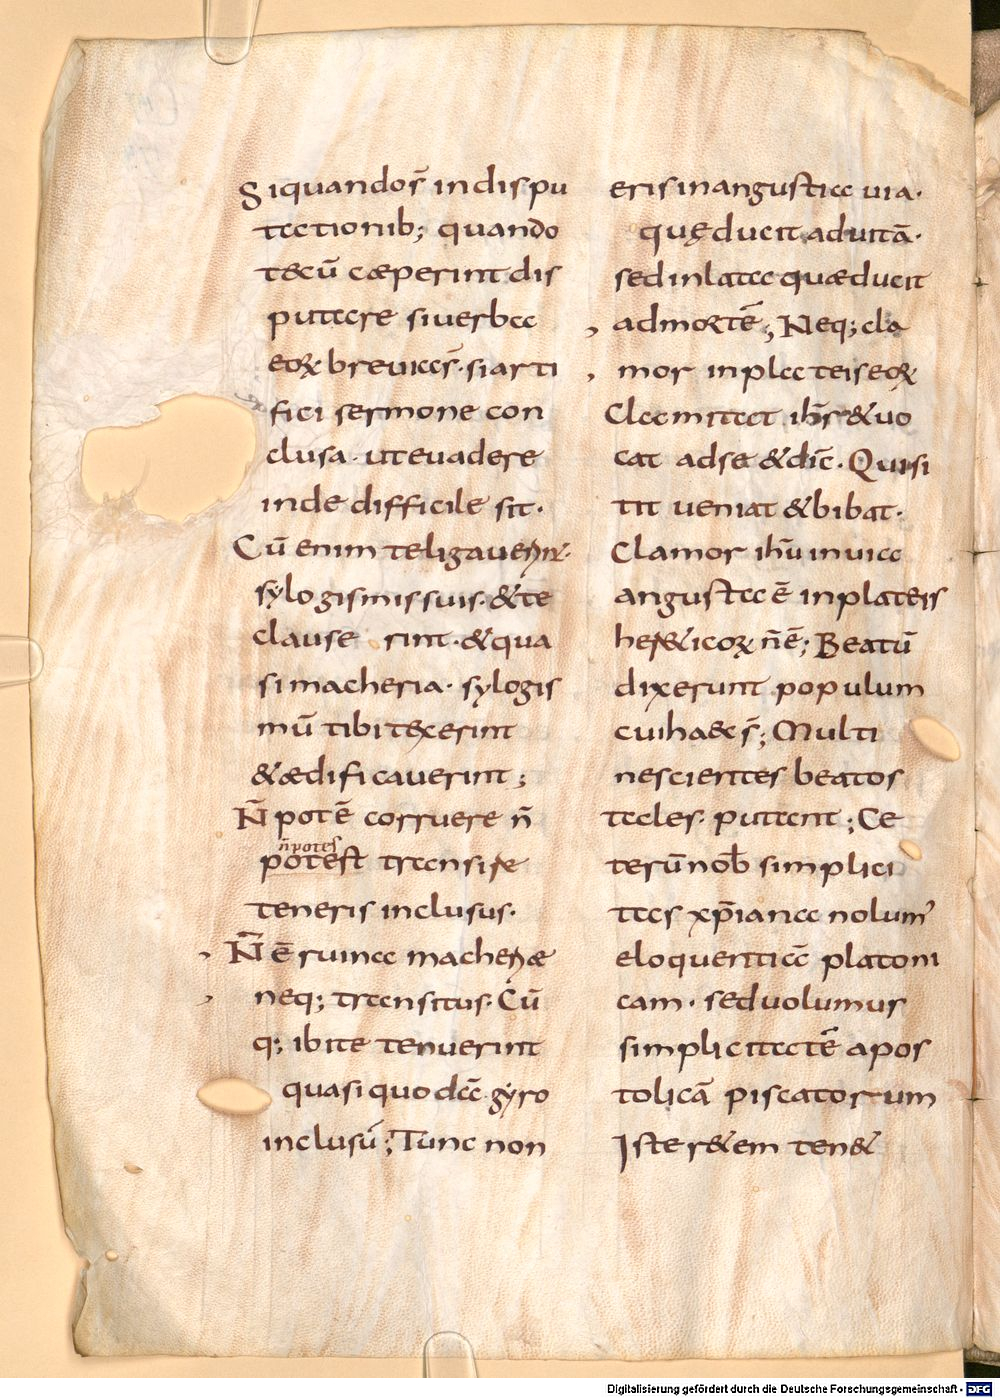 Si quando s̄ in dispu
tationib; quando
tecū cæperint dis
putare si uerba
eoꝝ breuia s̄ · si arti
fici sermone con
clusa · ut euadere
inde difficile sit ·
Cū enim te ligauerint ·
sylogismis suis · & te
clause rint · & qua
si macheria · sylogis
mū tibi texerint
& ædificauerint ;
N̄ potē corruere n̄
n̄ potes
potest transire
teneris inclusus ·
N̄ ē ruina macheriæ
neq; transitus · Cū
q; ibi te tenuerint
quasi quodā gyro
inclusū ; Tunc non
eris in angusta uia ·
quę ducit ad uitā ·
sed in lata quæ ducit
ad mortē ; Neq; cla
mor in plateis eoꝝ
Clamitat ihs̄ & uo
cat ad se & dic̄ · Qui si
tit ueniat & bibat ·
Clamor ihū in uia
angusta ē in plateis
hereticoꝝ n̄ ē ; Beatū
dixerunt populum
cui haec s̄ ; Multi
nescientes beatos
tales putant ; Ce
terū nob̄ simplici
tas xp̄iana nolum'
eloquentiā platoni
cam · sed uolumus
simplicitatē apos
tolicā piscatorum
Iste r&em ten&
Digitalisierung gefördert durch die Deutsche Forschungsgemeinschaft - DFG